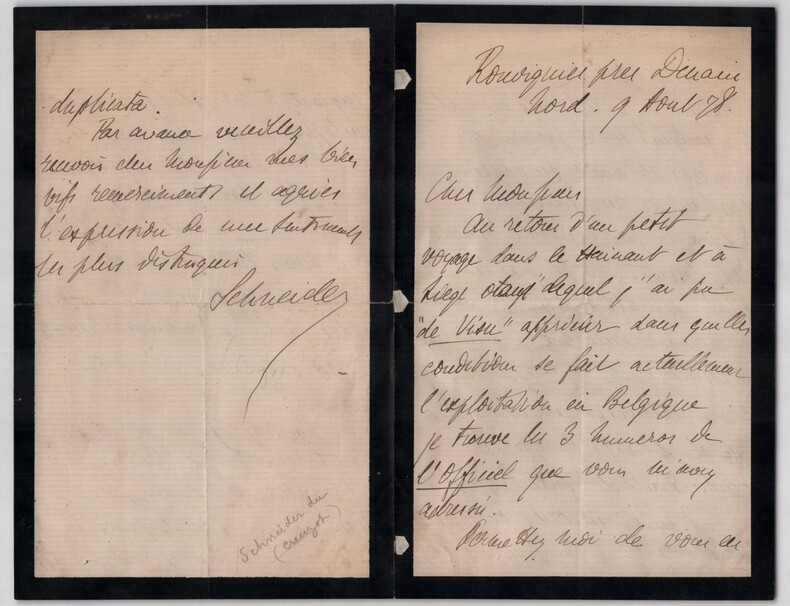 Rouvignies pres Denain
Nord. 9 Aout 78.
Cher Monsieur
Au retour d'un petit
voyage dans le Hainaut et à
Liège dans lequel j'ai pu
"de Visu" apprécier dans quelles
conditions se fait actuellement
l'exploitation en Belgique
je trouve les 3 numeros de
l'Officiel que vous m'avez
adressé.
Permettez moi de vous en
duplicata.
Par avance veuillez
recevoir cher Monsieur mes bien
vifs remerciments et agréer
l'expression de mes sentiments
les plus distingués
Schneider
Schneider du
(Creuzot)